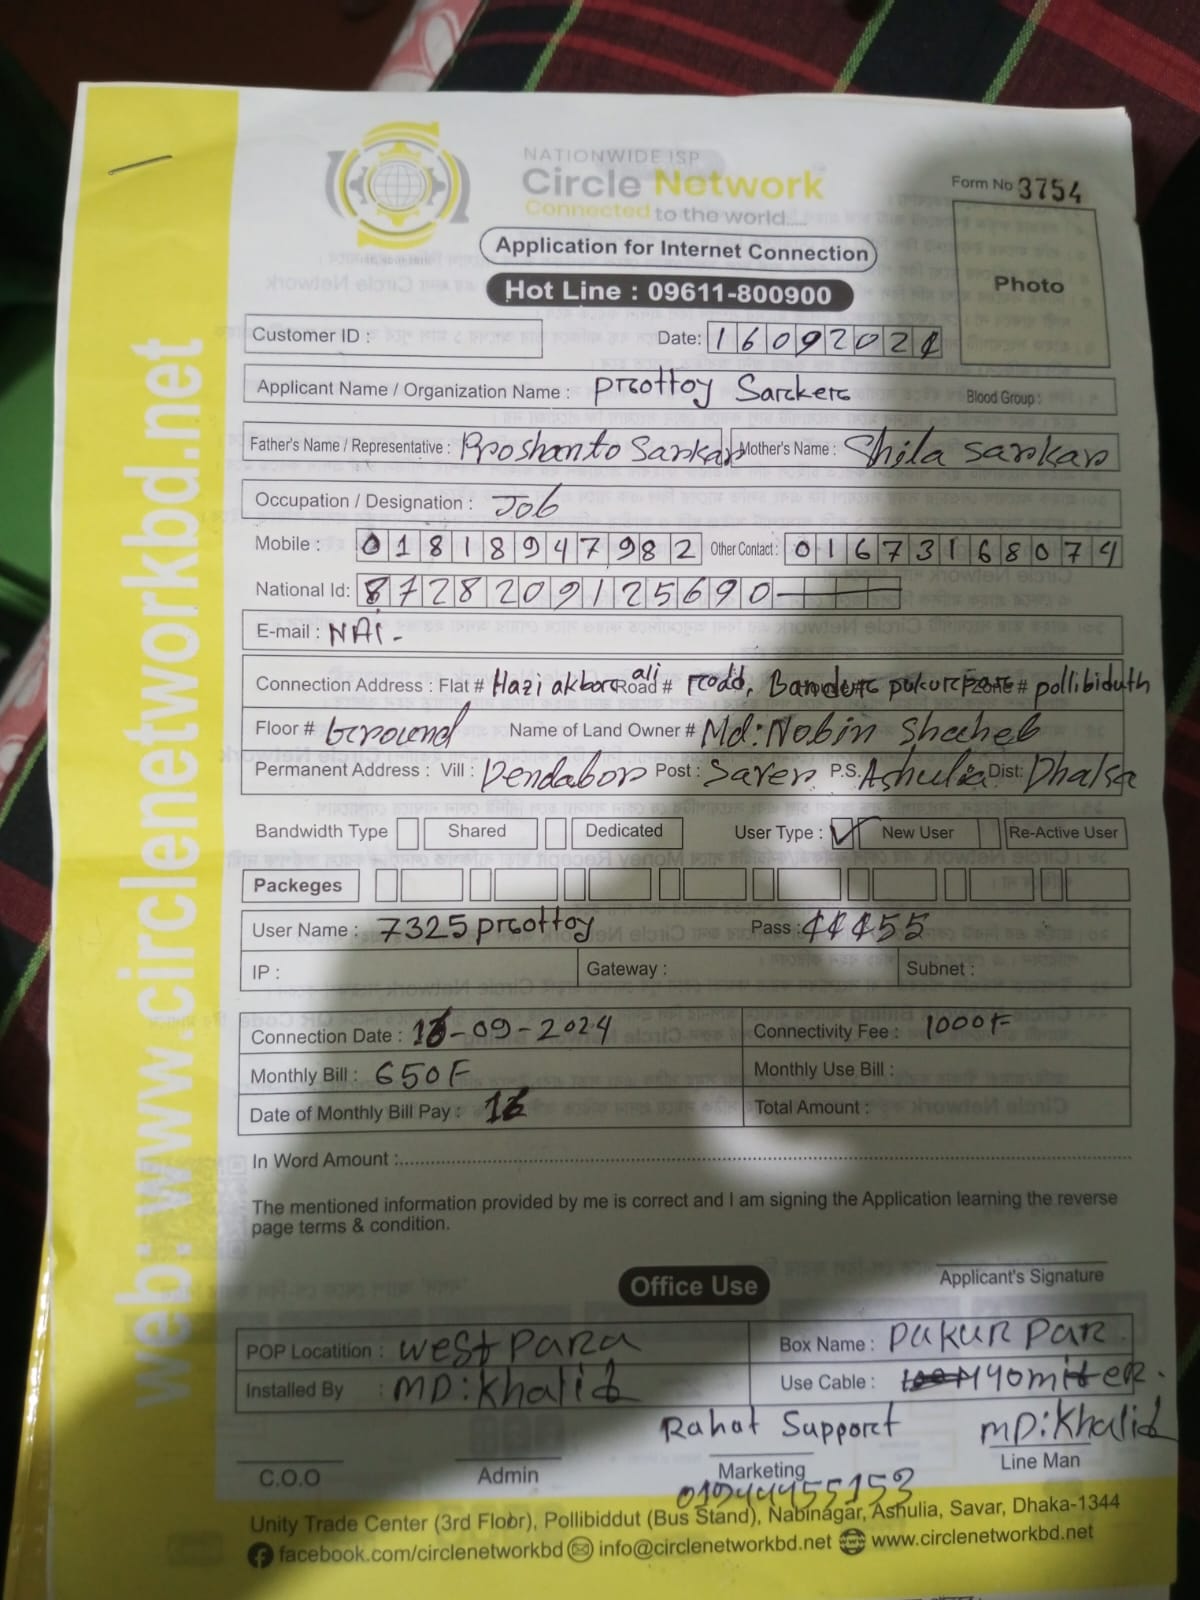 NATIONWIDE ISP
Circle Network
Connected to the world.....
Form No 3754
Application for Internet Connection
Hot Line : 09611-800900
Photo
Customer ID :
Date: 16092024
Applicant Name / Organization Name : Prottoy Sarker
Blood Group :
Father's Name / Representative : Proshanto Sarkar Mother's Name : Shila Sarkar
Occupation / Designation : Job
Mobile : 01818947982 Other Contact : 01673168074
National Id: 8728209125690
E-mail : NAI -
Connection Address : Flat # Hazi akbor ali Road # road, Bandur pukurpar Zone # pollibiduth
Floor # Ground Name of Land Owner # Md: Nobin Shaheb
Permanent Address : Vill : Dendabor Post : Saver P.S. Ashulia Dist: Dhaka
Bandwidth Type Shared Dedicated User Type : New User Re-Active User
Packeges
User Name : 7325prottoy Pass : 44455
IP : Gateway : Subnet :
Connection Date : 16-09-2024 Connectivity Fee : 1000F
Monthly Bill : 650F Monthly Use Bill :
Date of Monthly Bill Pay : 16 Total Amount :
In Word Amount :
The mentioned information provided by me is correct and I am signing the Application learning the reverse
page terms & condition.
Applicant's Signature
Office Use
POP Locatition : West Para Box Name : Pukur Par
Installed By : MD: Khalid Use Cable : 140 miter.
Rahat Support MD: Khalid
C.O.O Admin Marketing Line Man
01944455153
Unity Trade Center (3rd Floor), Pollibiddut (Bus Stand), Nabinagar, Ashulia, Savar, Dhaka-1344
facebook.com/circlenetworkbd info@circlenetworkbd.net www.circlenetworkbd.net
web: www.circlenetworkbd.net